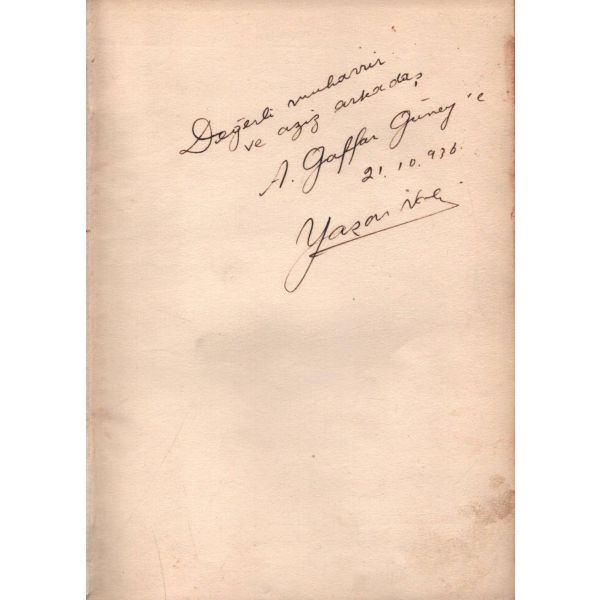 Değerli muharrir
ve aziz arkadaş
A. Gaffar Güney'e
21.10.936.
Yaşar